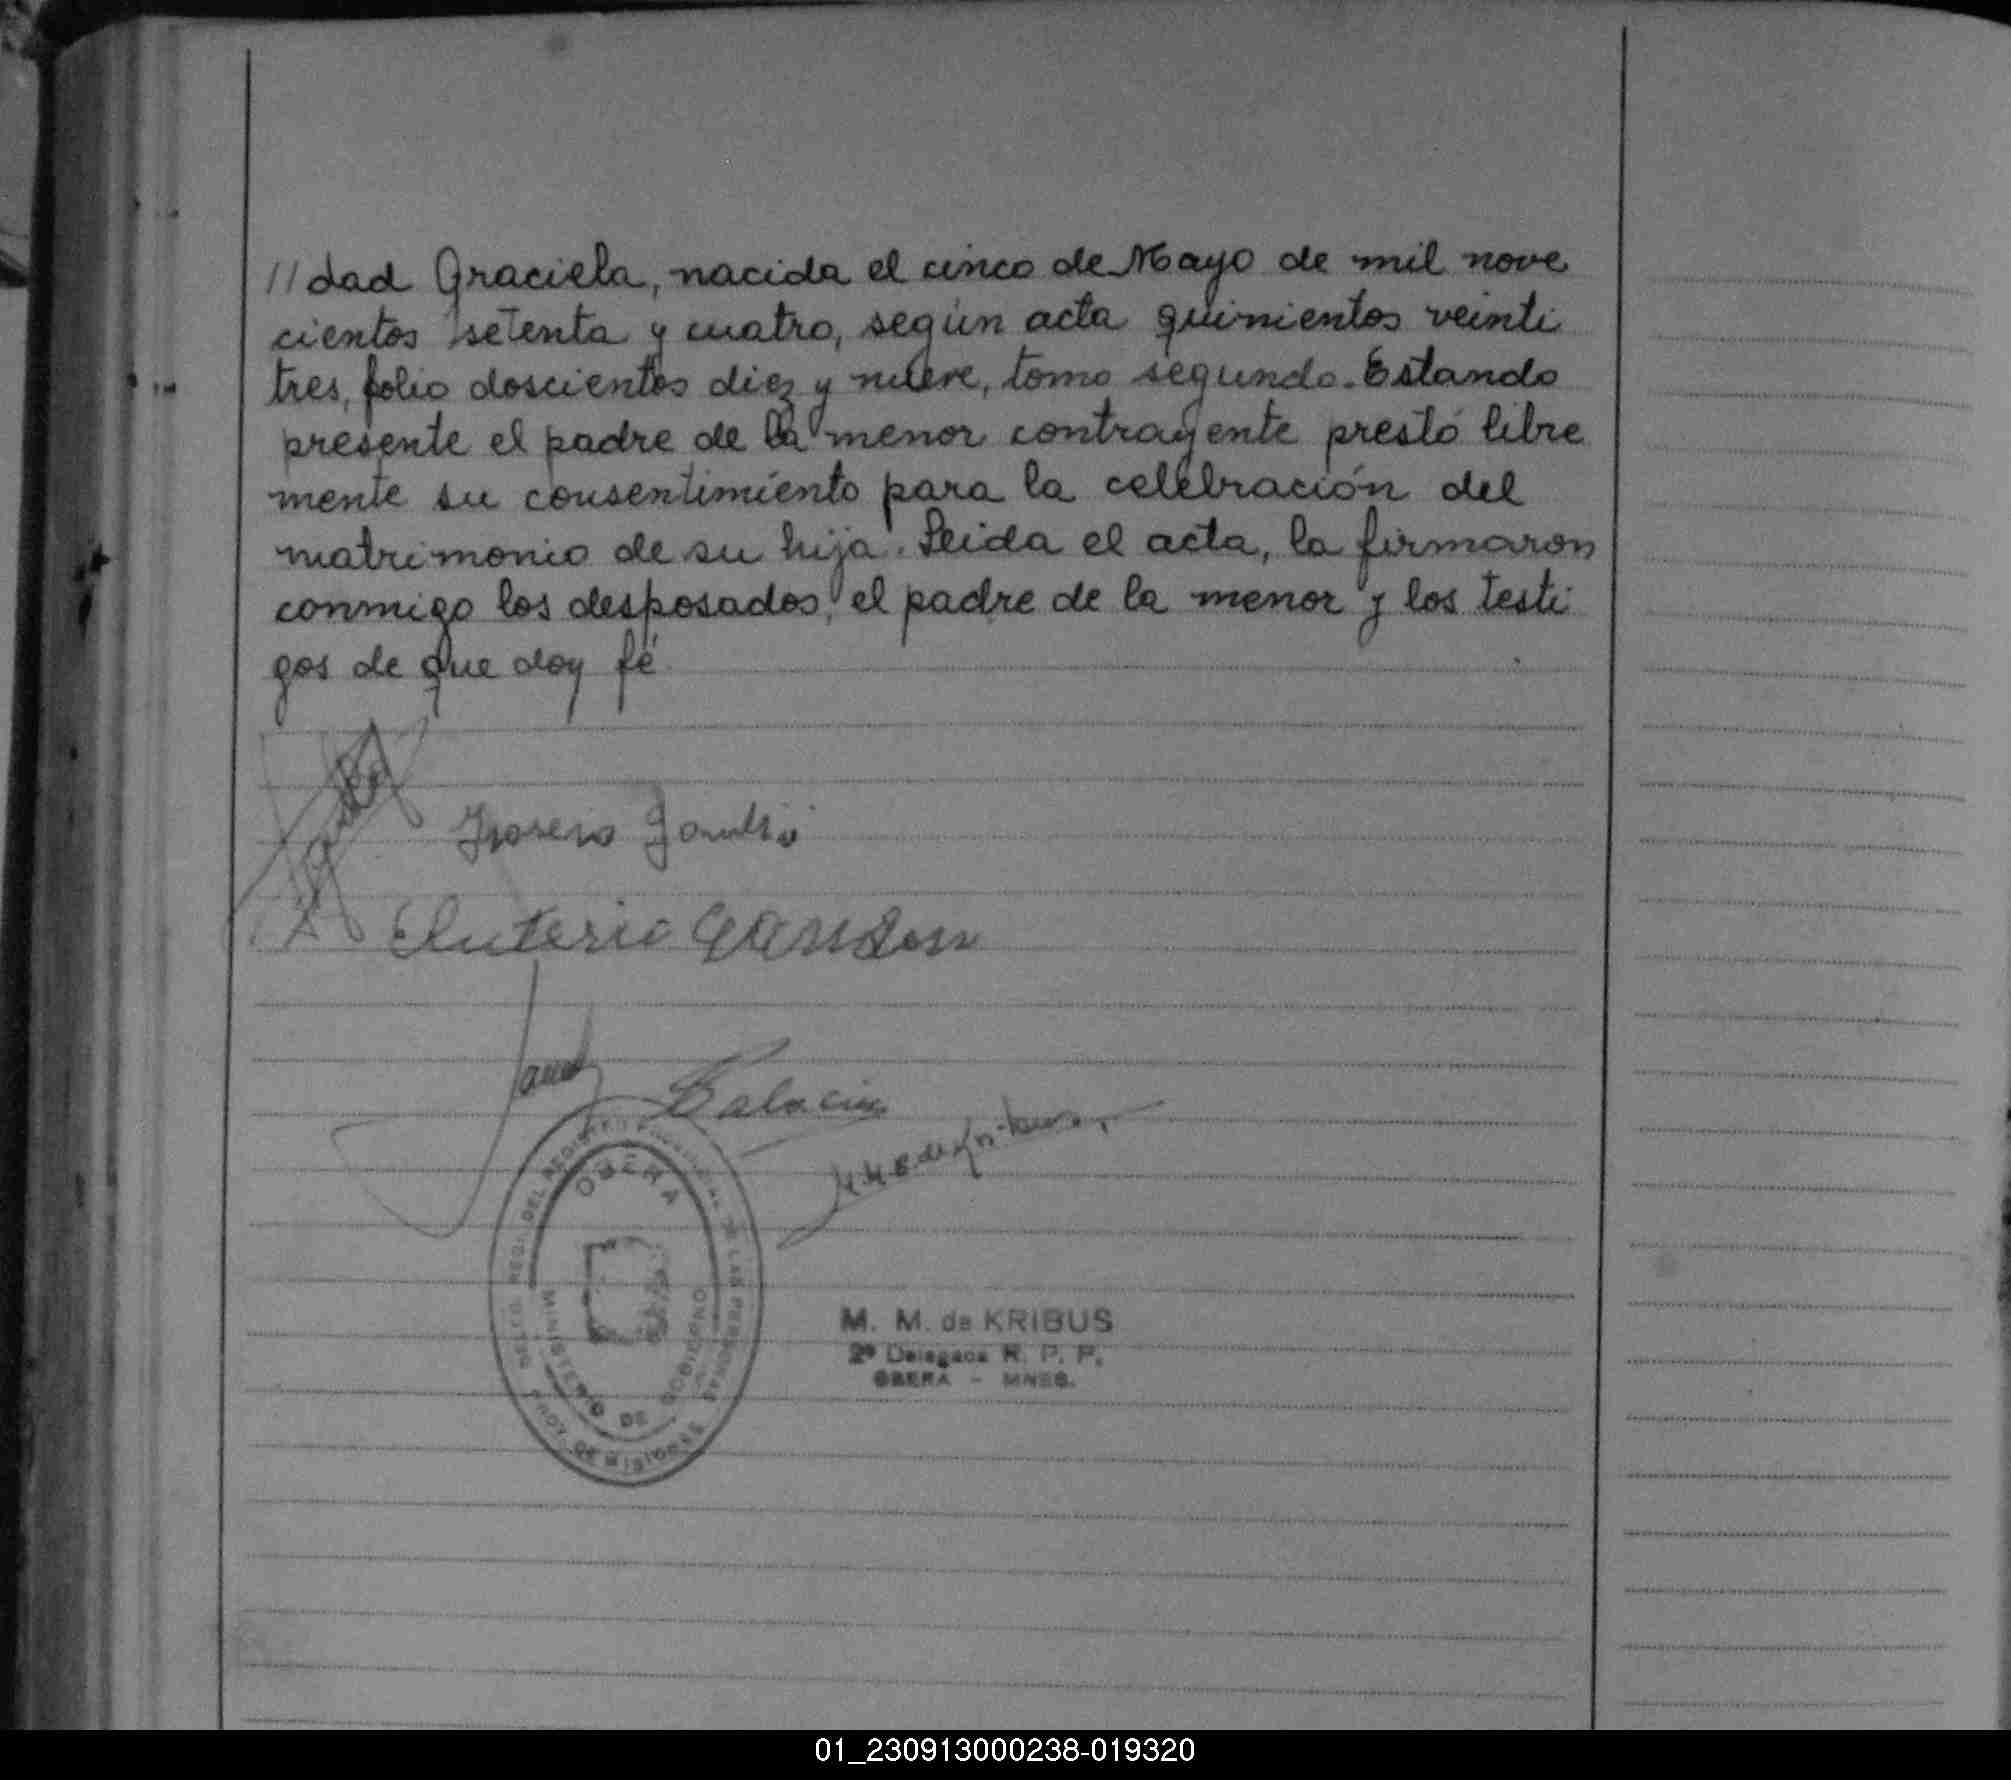 //dad Graciela, nacida el cinco de Mayo de mil nove
cientos setenta y cuatro, según acta quinientos veinti
tres, folio doscientos diez y nueve, tomo segundo. Estando
presente el padre de la menor contrayente prestó libre
mente su consentimiento para la celebración del
matrimonio de su hija. Leida el acta, la firmaron
conmigo los desposados, el padre de la menor y los testi
gos de que doy fé
OBERA
MINISTERIO DE GOBIERNO
PROV. DE MISIONES
M. M. de KRIBUS
2ª Delegada R. P. P.
OBERA - MNES.
01_230913000238-019320